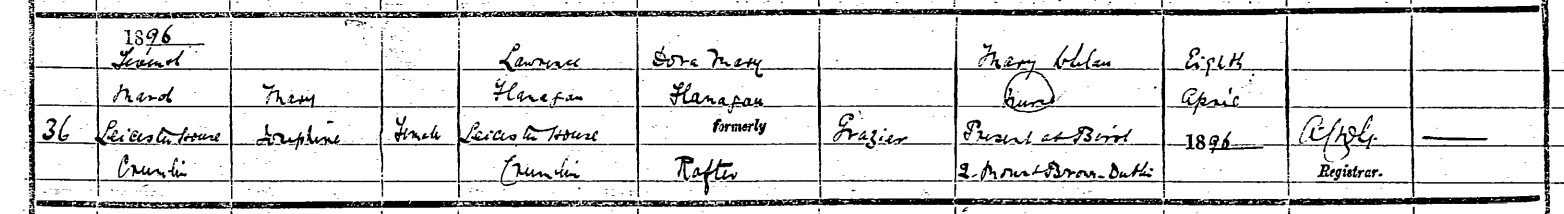 36
1896
Second
March
Leicester House
Crumlin
Mary
Josephine
Female
Lawrence
Flanagan
Leicester House
Crumlin
Dora Mary
Flanagan
formerly
Rafter
Grazier
Mary Whelan
Nurse
Present at Birth
2 Mount Brown Dublin
Eighth
April
1896
Registrar.